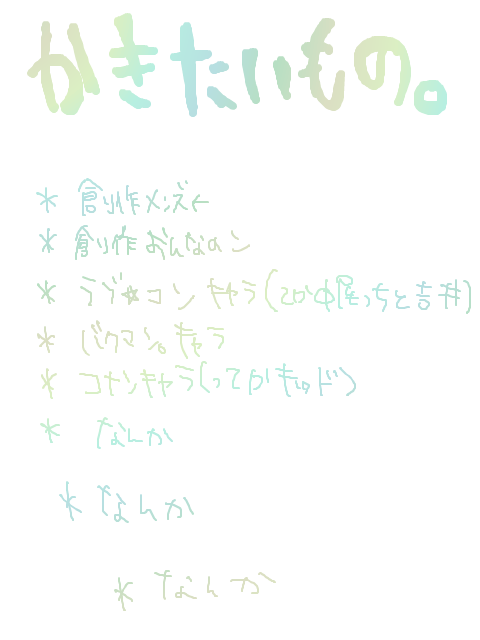 かきたいもの。
* 創作メンズ←
* 創作おんなのコ
* ラヴ★コンキャラ(てゆか中尾っちと吉井)
* バクマン。キャラ
* コナンキャラ(ってかキッド)
* なんか
* なんか
* なんか